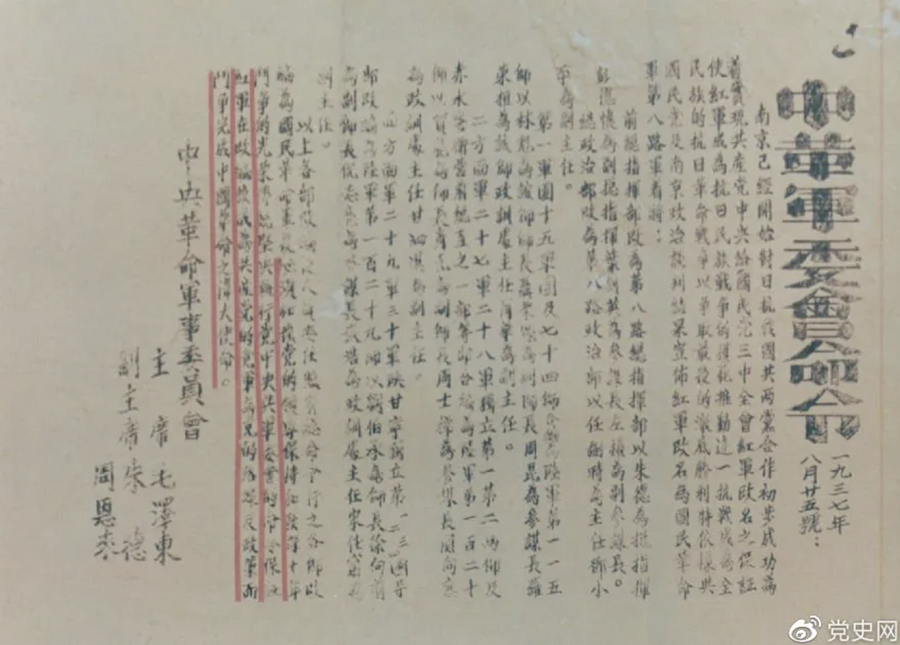 中華軍委會命令
一九三七年
八月廿五號：
南京已經開始對日抗戰國共兩黨合作初步成功為
着實現共產党中央給國民党三中全會紅軍改名之保証
使紅軍成為抗日民族戰爭的模范推動這一抗戰成為全
民族的抗日革命戰爭以爭取最後的澈底勝利特依據共
國民党及南京政治談判結果宣佈紅軍改名為國民革命
軍第八路軍着將：
前總指揮部改為第八路總指揮部以朱德為總指揮
彭德懷為副總指揮葉劍英為參謀長左權為副參謀長。
總政治部改為第八路政治部以任弼時為主任鄧小
平為副主任。
第一軍團十五軍團及七十四師合編為陸軍第一一五
師以林彪為該師師長聶榮臻為副師長周昆為參謀長羅
榮桓為該師政訓處主任肖華為副主任。
二方面軍二十七軍二十八軍獨立第一第二兩師及
赤水警衛營前總直之一部等部合編為陸軍第一百二十
師以賀龍為師長肖克為副師長周士第為參謀長關向應
為政訓處主任甘泗淇為副主任。
四方面軍二十九軍三十軍陝甘寧獨立第一二三四團等
部改編為陸軍第一百二十九師以劉伯承為師長徐向前
為副師長倪志亮為參謀長張浩為政訓處主任宋任窮為
副主任。
以上各部改編後人員委任照前總命令行之各部改
編為國民革命軍後必須加強党的領導保持和發揚十年
鬥爭的光榮傳統堅決執行党中央與軍委會的命令保証
紅軍在改編後成為共產党的党軍為党的路線及政策而
鬥爭完成中國革命之偉大使命。
中央革命軍事委員會
主席 毛澤東
副主席 朱德
周恩來
党史网